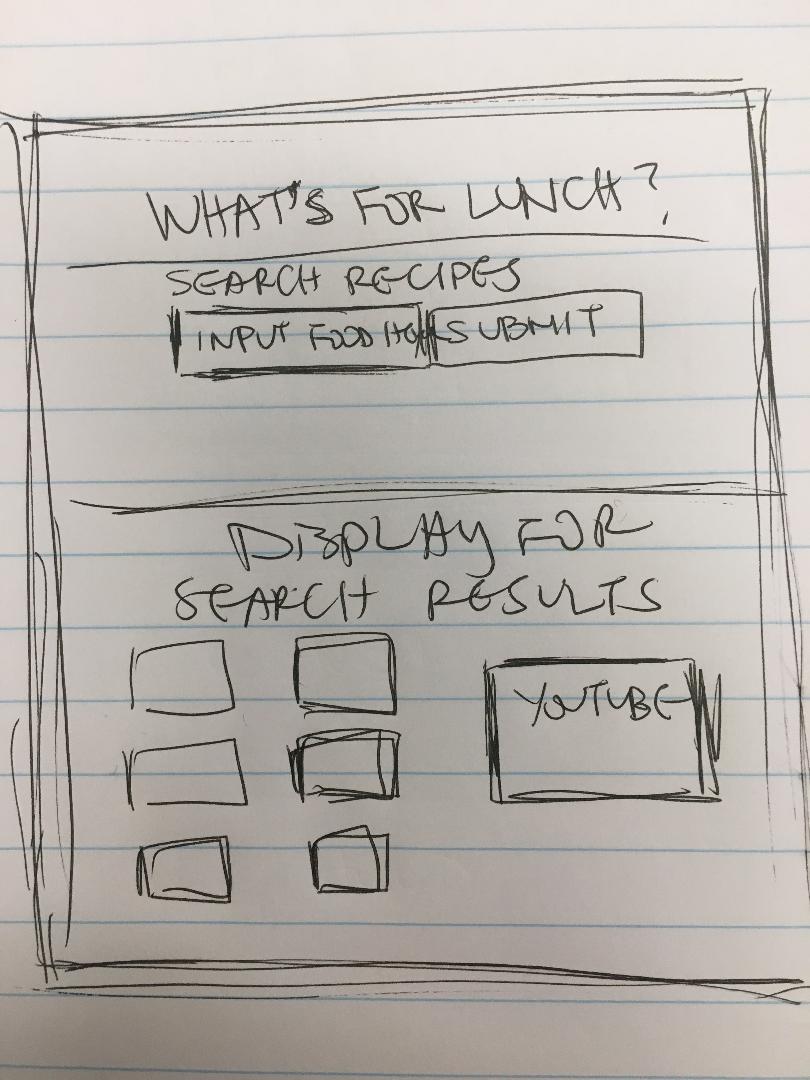 WHAT'S FOR LUNCH?
SEARCH RECIPES
INPUT FOOD SUBMIT
DISPLAY FOR
SEARCH RESULTS
YOUTUBE